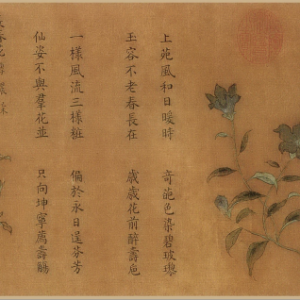 上苑風和日暖時 奇葩色染碧玻瓈
玉容不老春長在 歲歲花前醉壽卮
一樣風流三樣粧 偏於永日逞芬芳
仙姿不與羣花並 只向坤寧薦壽觴
春花